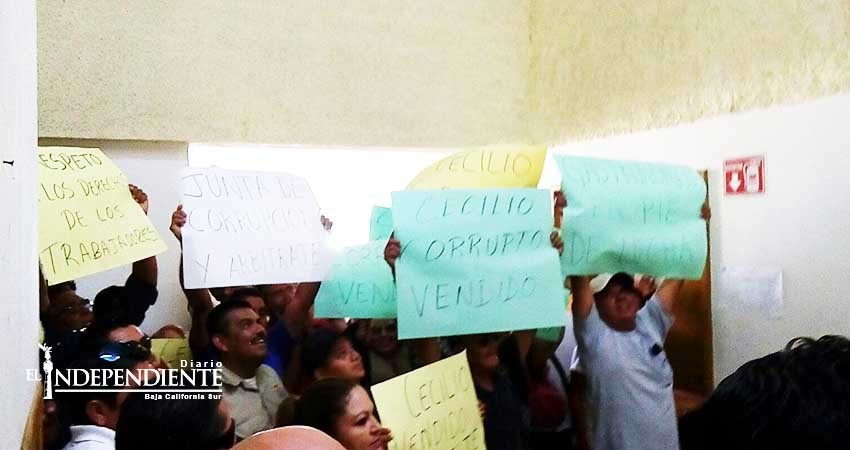 RESPETO
A LOS DERECHOS
DE LOS
TRABAJADORES
JUNTA DE
CORRUPCION
Y ARBITRATE
CECILIO
CECILIO
CORRUPTO
VENDIDO
VENDI
PIE
DE LUCHA
CECILIO
VENDIDO
Diario
EL INDEPENDIENTE
Baja California Sur